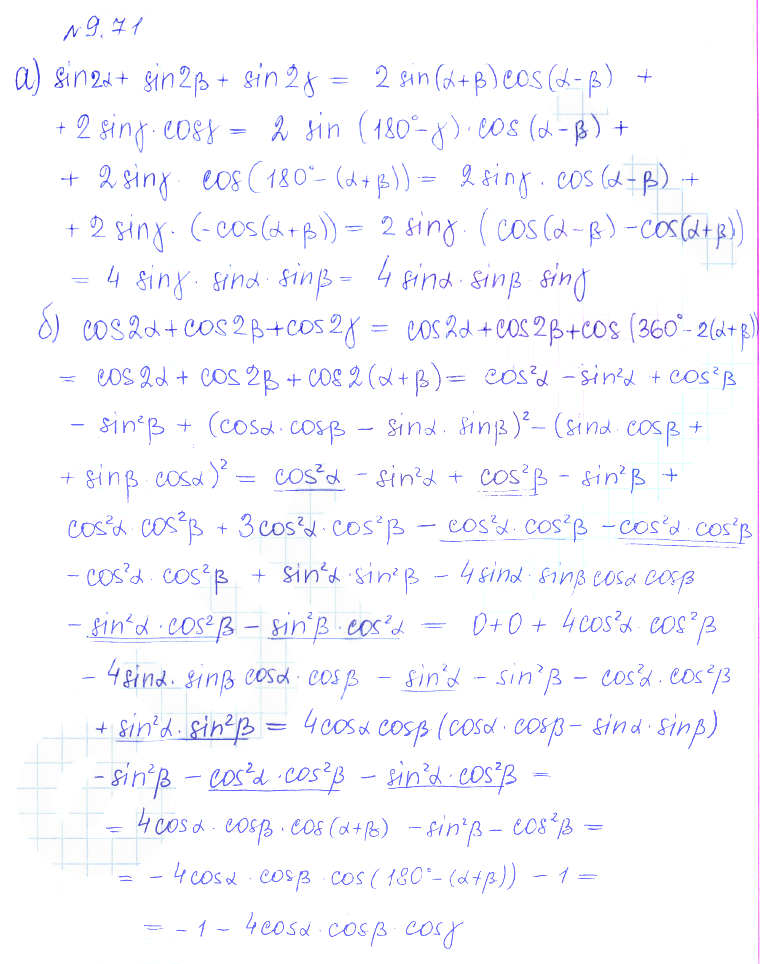 №9.71
а) sin2α + sin2β + sin2γ = 2 sin(α+β)cos(α-β) +
+ 2 sinγ · cosγ = 2 sin (180°-γ) · cos (α-β) +
+ 2 sinγ · cos(180°-(α+β)) = 2 sinγ · cos(α-β) +
+ 2 sinγ · (-cos(α+β)) = 2 sinγ · (cos(α-β) -cos(α+β))
= 4 sinγ · sinα · sinβ = 4 sinα · sinβ sinγ
б) cos2α+cos2β+cos2γ = cos2α+cos2β+cos (360°-2(α+β))
= cos2α + cos2β + cos2(α+β) = cos²α - sin²α + cos²β
- sin²β + (cosα·cosβ - sinα·sinβ)² - (sinα·cosβ +
+ sinβ cosα)² = cos²α - sin²α + cos²β - sin²β +
cos²α·cos²β + 3cos²α·cos²β - cos²α·cos²β - cos²α·cos²β
- cos²α·cos²β + sin²α·sin²β - 4sinα·sinβ cosα cosβ
- sin²α·cos²β - sin²β·cos²α = 0+0 + 4cos²α·cos²β
- 4sinα·sinβ cosα·cosβ - sin²α - sin²β - cos²α·cos²β
+ sin²α·sin²β = 4cosα cosβ(cosα·cosβ - sinα·sinβ)
- sin²β - cos²α·cos²β - sin²α·cos²β =
= 4cosα·cosβ·cos(α+β) - sin²β - cos²β =
= - 4cosα·cosβ·cos(180°-(α+β)) - 1 =
= - 1 - 4cosα·cosβ·cosγ